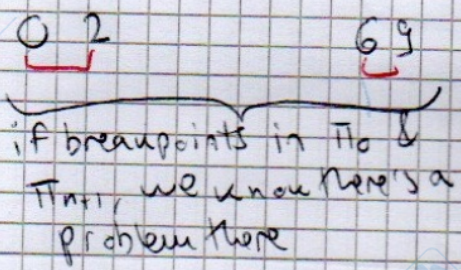 0 2 6 9
if breakpoints in π0 &
πn+1, we know there's a
problem there